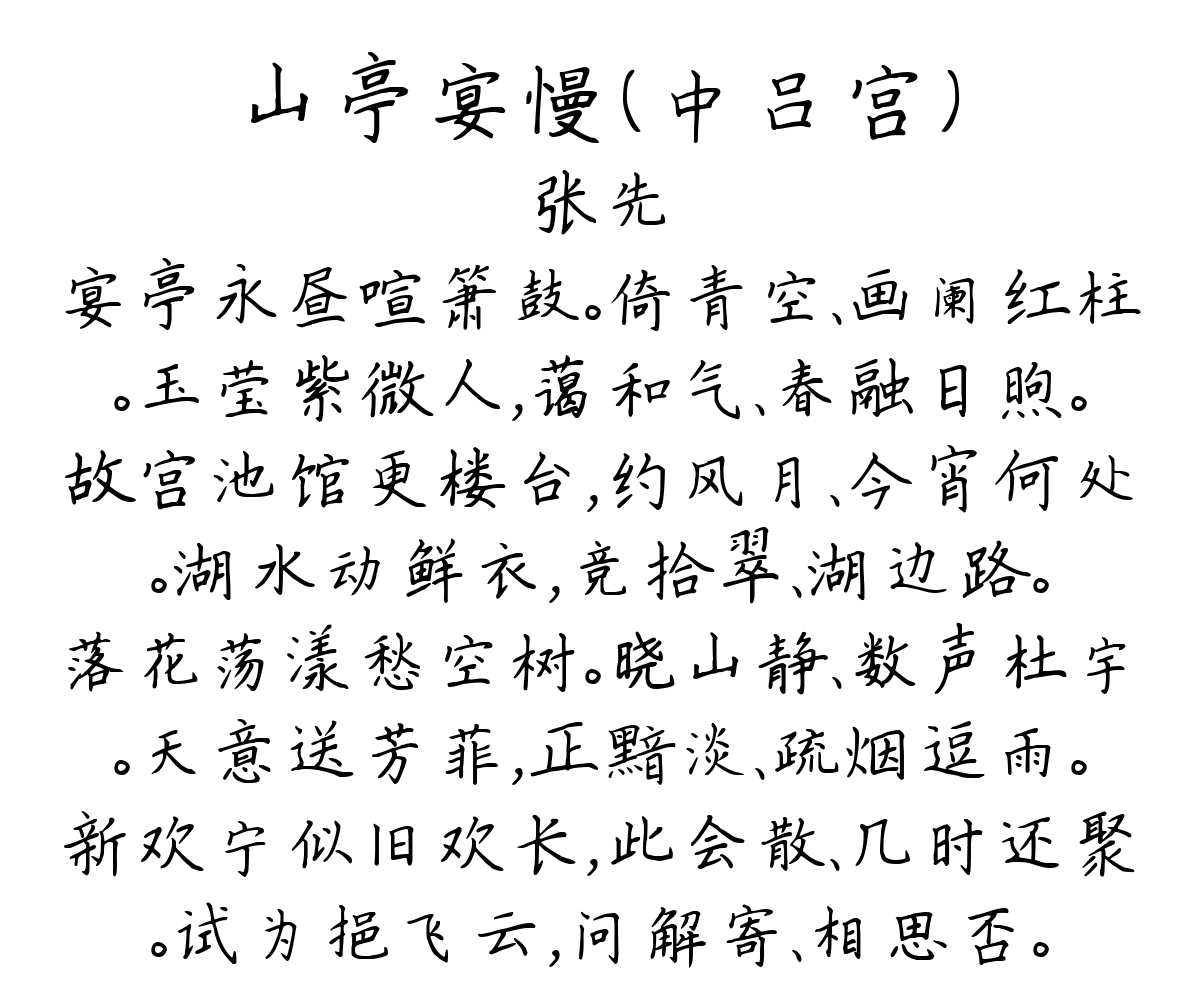 山亭宴慢(中吕宫)
张先
宴亭永昼喧箫鼓。倚青空、画阑红柱
。玉莹紫微人,蔼和气、春融日煦。
故宫池馆更楼台,约风月、今宵何处
。湖水动鲜衣,竞拾翠、湖边路。
落花荡漾愁空树。晓山静、数声杜宇
。天意送芳菲,正黯淡、疏烟逗雨。
新欢宁似旧欢长,此会散、几时还聚
。试为挹飞云,问解寄、相思否。